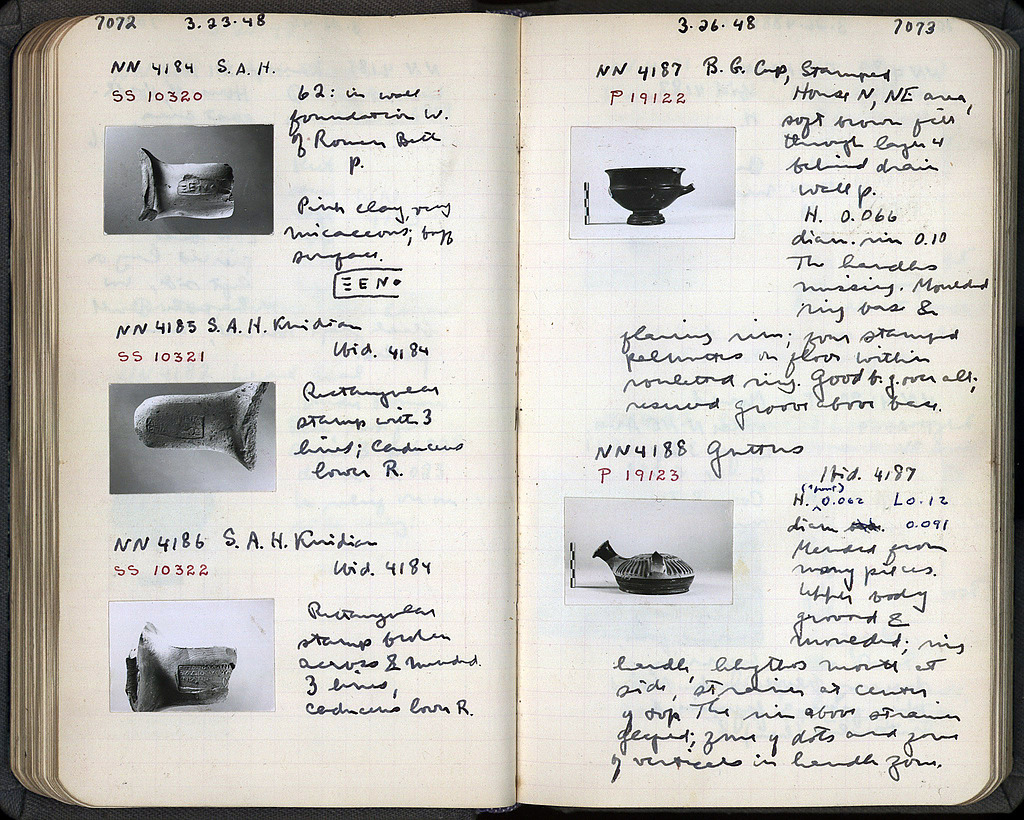 7072 3.23.48
NN 4184 S.A.H.
SS 10320
62: in wall
foundation W.
of Roman Bldg
p.
Pink clay, very
micaceous; buff
surface.
ΞENO
NN 4185 S.A.H. Knidian
SS 10321
Ibid. 4184
Rectangular
stamp with 3
lines; caduceus
lower R.
NN 4186 S.A.H. Knidian
SS 10322
Ibid. 4184
Rectangular
stamp broken
across & mended.
3 lines,
caduceus lower R.
3.26.48 7073
NN 4187 B.G. Cup, Stamped
P 19122
House N, NE area,
soft brown fill
through layer 4
behind drain
wall p.
H. 0.066
diam. rim 0.10
The handles
missing. Moulded
ring base &
flaring rim; four stamped
palmettes on floor within
rouletted ring. Good b.g. over all;
reserved groove above base.
NN 4188 Guttus
P 19123
Ibid. 4187
(spout)
H. 0.062 L 0.12
diam 0.091
Mended from
many pieces.
Upper body
grooved &
moulded; ring
handle, lekythos mouth at
side, strainer at center
of top. The rim above strainer
; zone of dots and zone
of verticals in handle zone.